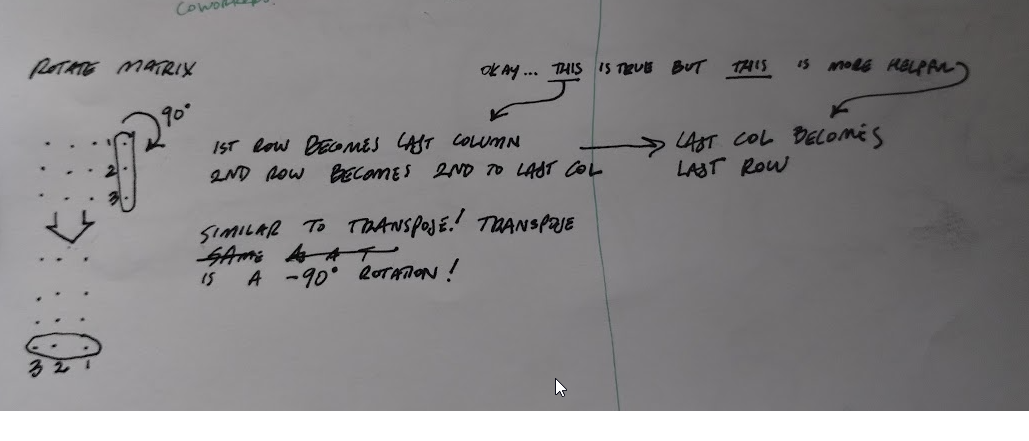 COWORKERS!
ROTATE MATRIX
OKAY... THIS IS TRUE BUT THIS IS MORE HELPFUL
90°
1
2
3
1ST ROW BECOMES LAST COLUMN
2ND ROW BECOMES 2ND TO LAST COL
LAST COL BECOMES
LAST ROW
SIMILAR TO TRANSPOSE! TRANSPOSE
SAME AS A T
IS A -90° ROTATION!
3 2 1